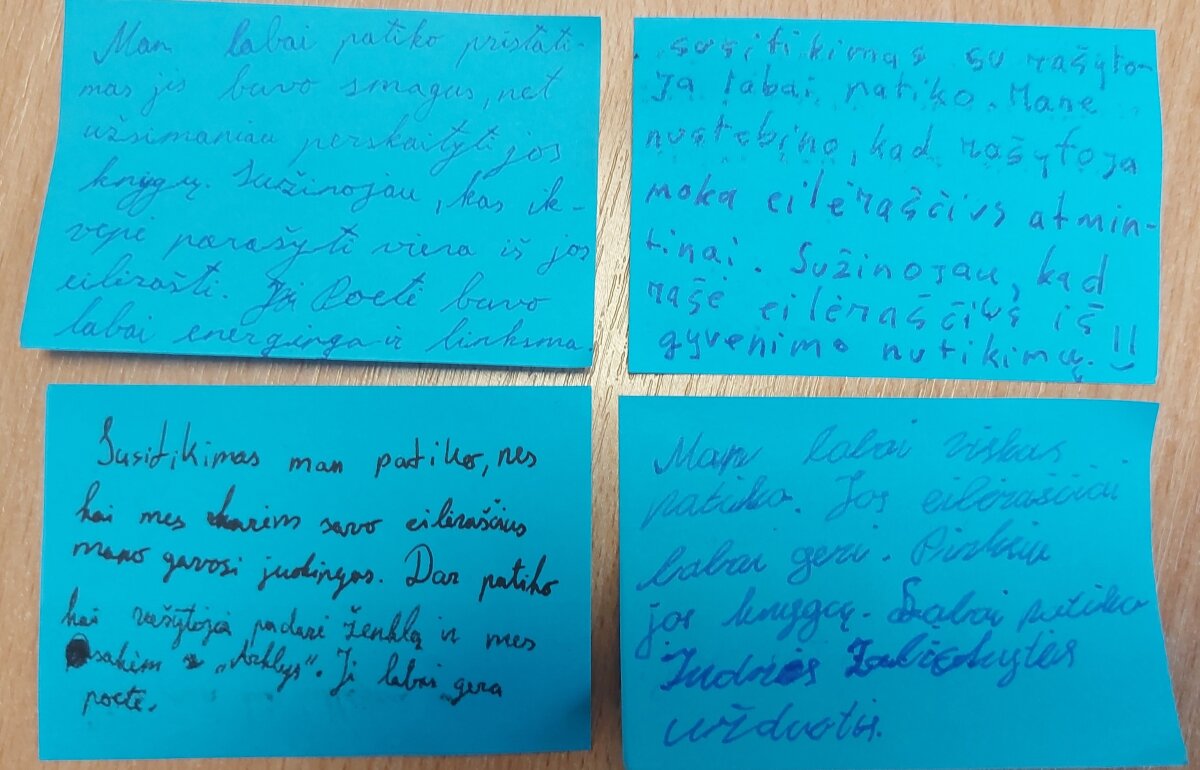 Man labai patiko pristati-
mas jis buvo smagus, net
užsimaniau perskaityti jos
knygų. Sužinojau, kas įk-
vėpė parašyti viena iš jos
eilėrašti. Ji Poetė buvo
labai energinga ir linksma.
susitikimas su rašyto-
ja labai patiko. Mane
nustebino, kad rašytoja
moka eilėraščius atmin-
tinai. Sužinojau, kad
rašė eilėraščius iš
gyvenimo nutikimų.!!
Susitikimas man patiko, nes
kai mes kūrėm savo eilėraščius
mano gavosi juokingas. Dar patiko
kai rašytoja padarė ženklą ir mes
sakėm „Arklys". Ji labai gera
poetė.
Man labai viskas
patiko. Jos eilėraščiai
labai geri. Pirksiu
jos knygą. Labai patiko
užduotis.